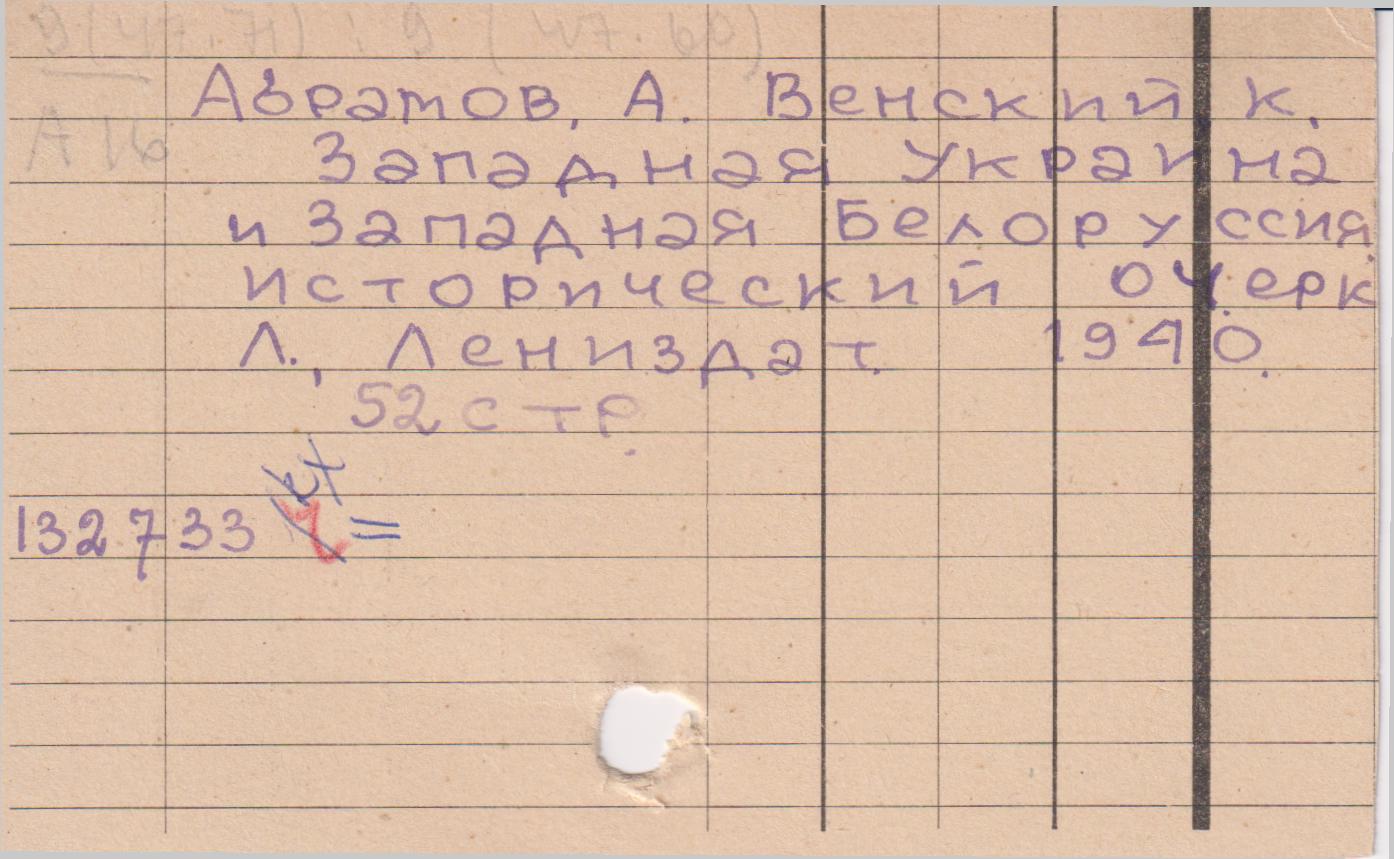 9(47.71) : 9 (47.60)
А16
Абрамов, А. Венский К.
Западная Украина
и Западная Белоруссия.
исторический очерк
Л., Лениздат. 1940.
52 стр.
132733 =